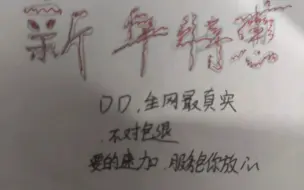 新年特惠
DD、全网最真实
不对包退
要的速加、服务包你放心